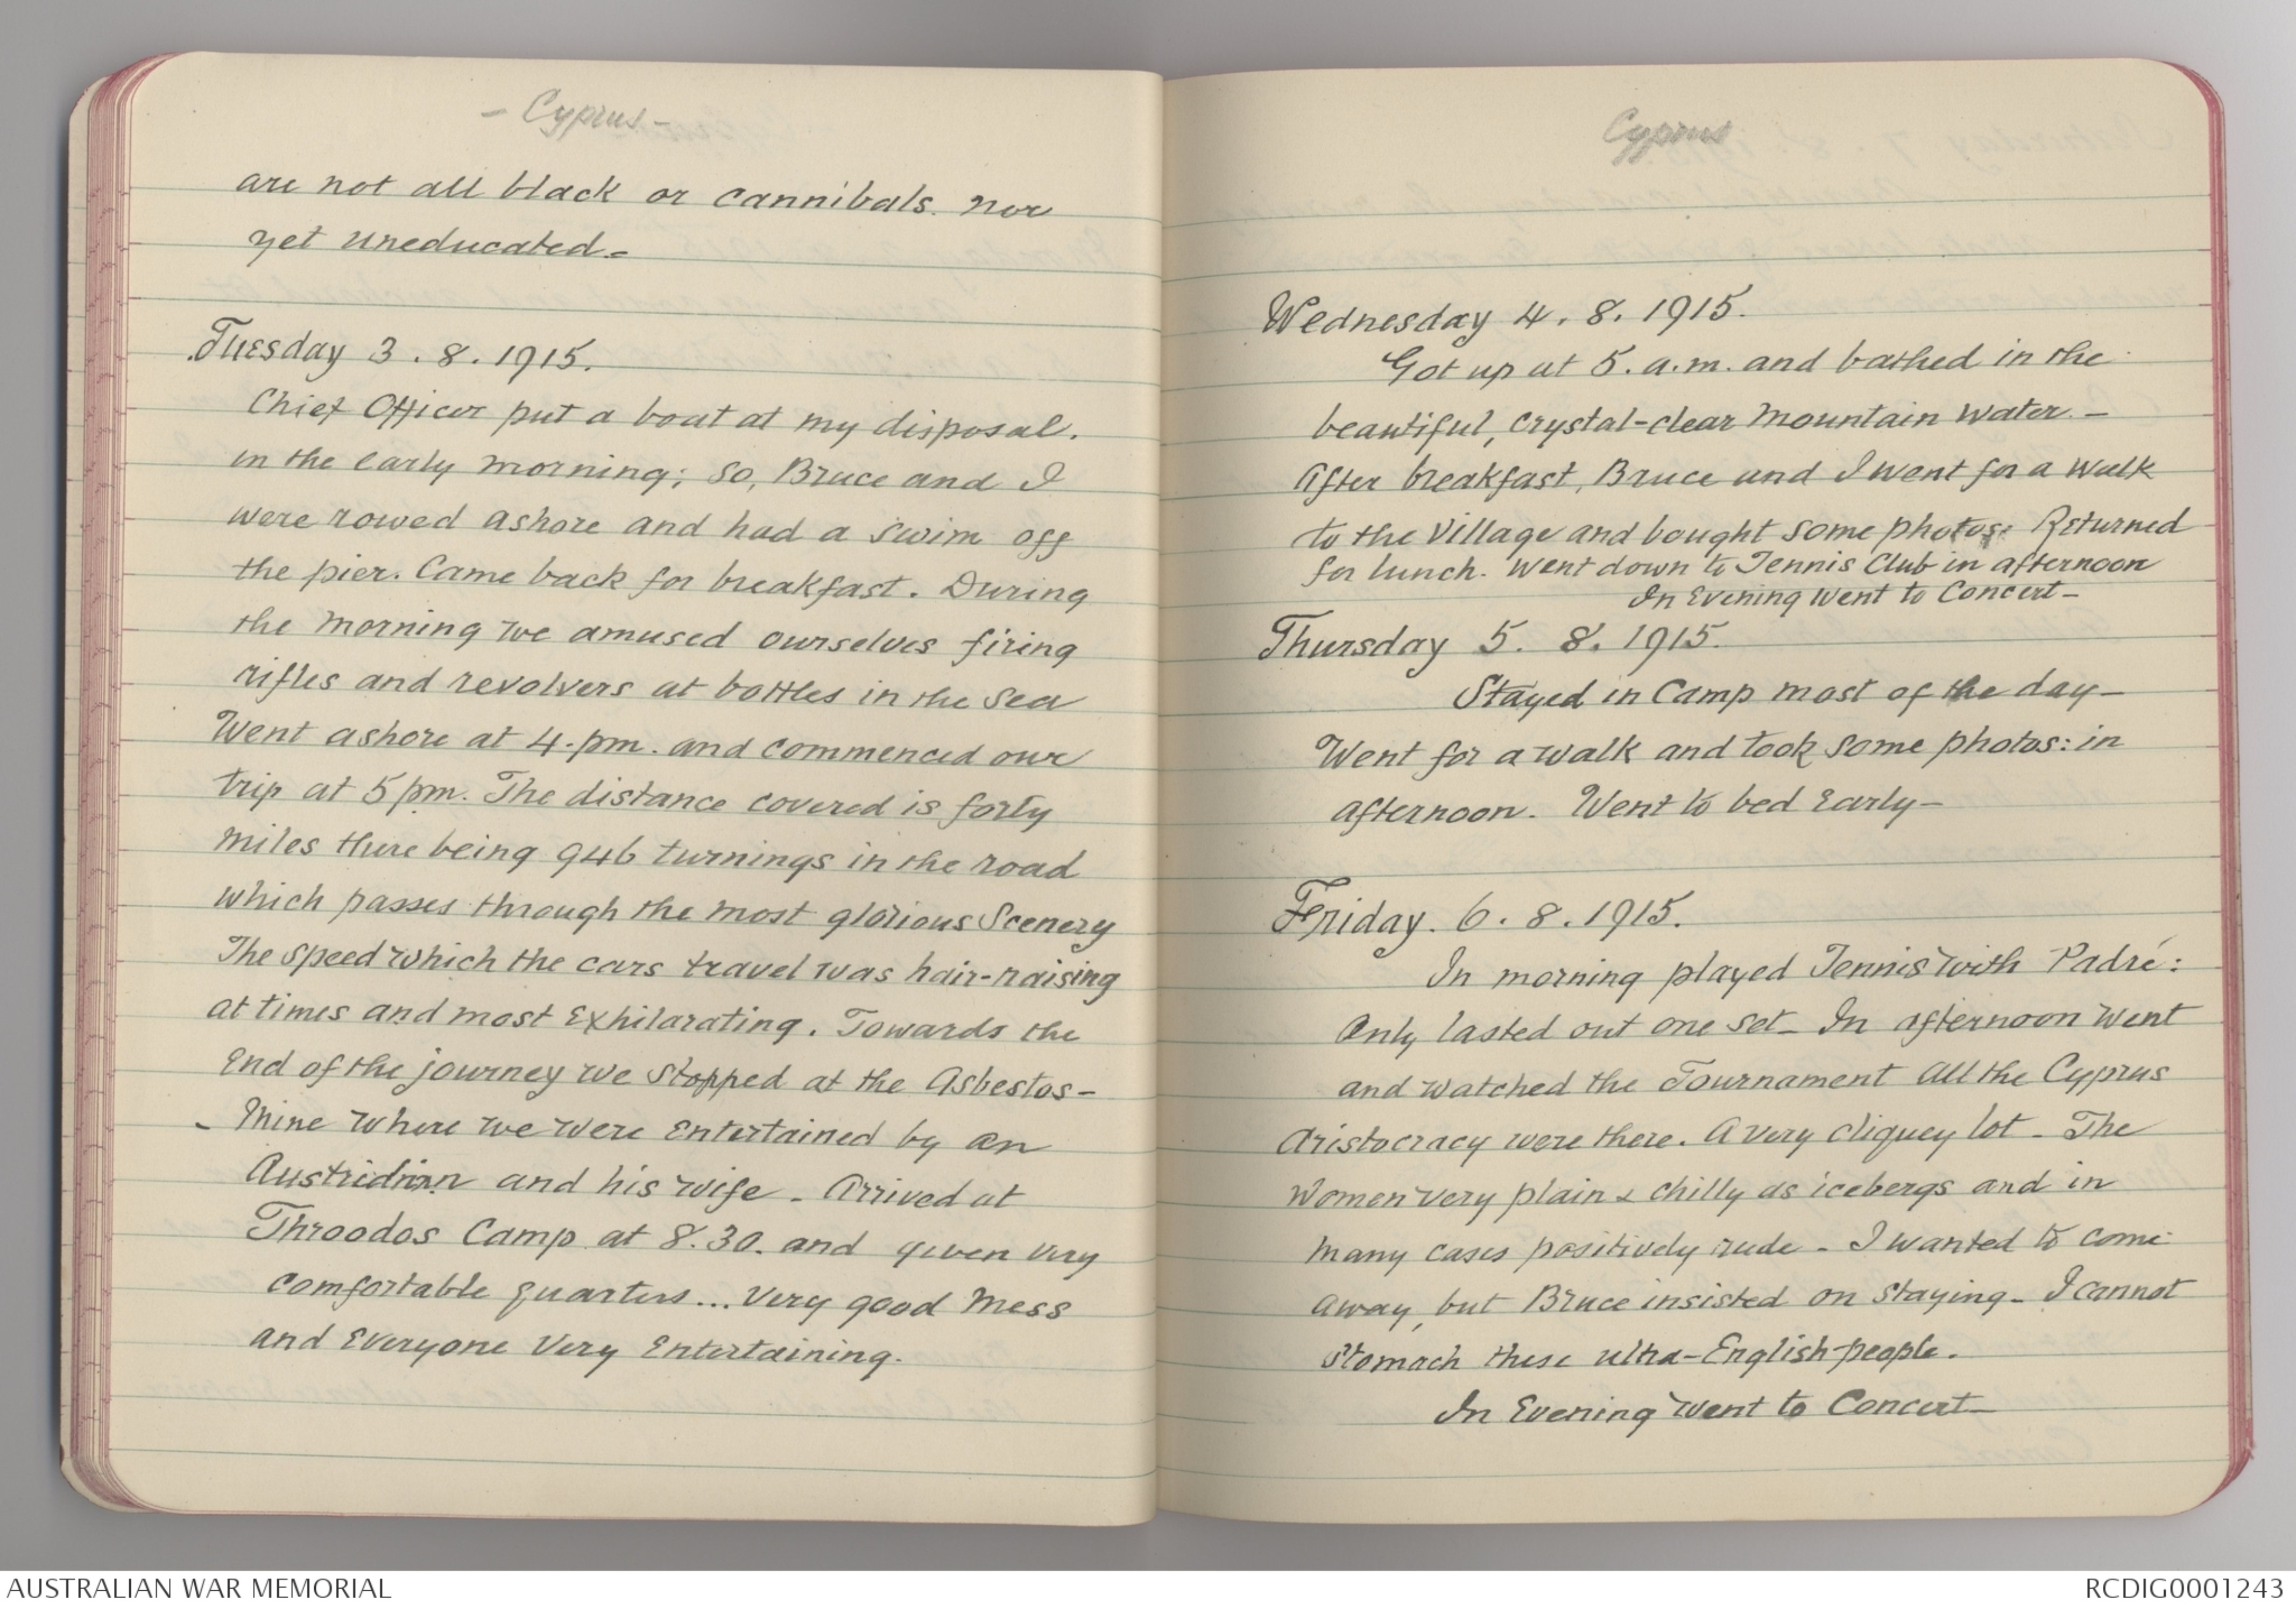 - Cyprus -
are not all black or cannibals. Nor
yet uneducated.-
Tuesday 3. 8. 1915.
Chief Officer put a boat at my disposal.
in the early morning; so, Bruce and I
were rowed ashore and had a swim off
the pier. Came back for breakfast. During
the morning we amused ourselves firing
rifles and revolvers at bottles in the sea
Went ashore at 4-pm. and commenced our
trip at 5pm. The distance covered is forty
miles there being 946 turnings in the road
which passes through the most glorious Scenery
The speed which the cars travel was hair-raising
at times and most Exhilarating. Towards the
End of the journey we Stopped at the Asbestos-
- Mine where we were Entertained by an
and his wife - Arrived at
Throodos Camp at 8.30. and given very
comfortable quarters... Very good Mess
and Everyone Very Entertaining.
Cyprus
Wednesday 4. 8. 1915.
Got up at 5. a.m. and bathed in the
beautiful, crystal-clear Mountain Water. -
After breakfast, Bruce and I went for a walk
to the Village and bought some photos: Returned
for lunch. Went down to Tennis Club in afternoon
In Evening Went to Concert-
Thursday 5. 8. 1915.
Stayed in Camp most of the day-
Went for a walk and took some photos: in
afternoon. Went to bed Early-
Friday. 6. 8. 1915.
In morning played Tennis with Padré:
Only lasted out one set- In afternoon Went
and watched the Tournament All the Cyprus
Aristocracy were there. A very cliquey lot - The
Women very plain & chilly as icebergs and in
Many cases positively rude - I wanted to come
away, but Bruce insisted on Staying- I cannot
Stomach these ultra-English-people.
In Evening went to Concert-
AUSTRALIAN WAR MEMORIAL
RCDIG0001243